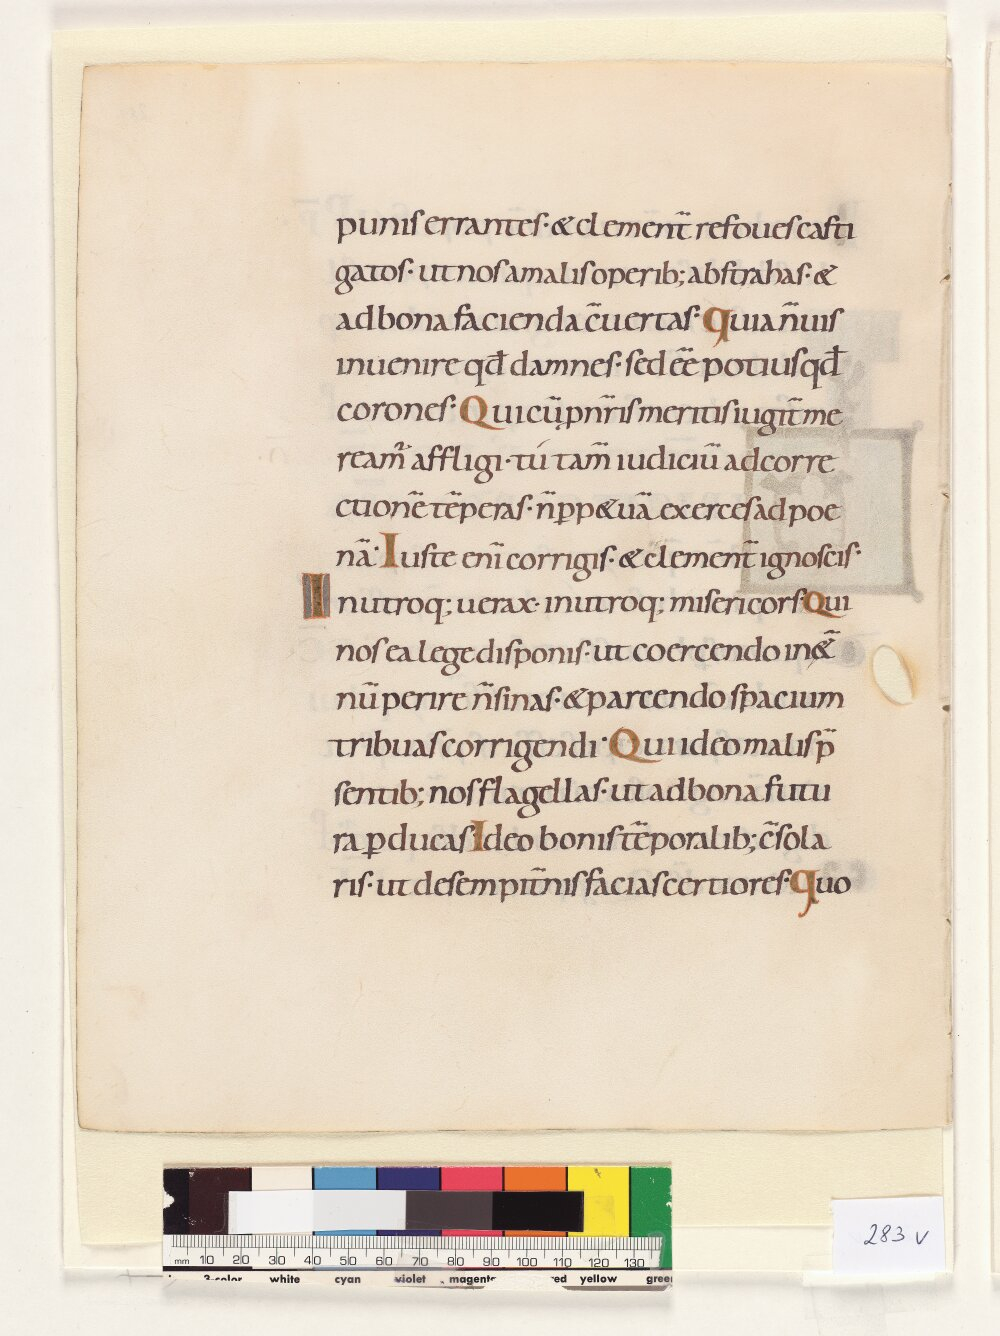 punis errantes· & clement̄ refoues casti
gatos· ut nos a malis operib; abstrahas· &
ad bona facienda c̄uertas· Quia n̄ uis
inuenire qđ damnes· sed ēē potius qđ
corones· Qui cū pn̄ris meritis iugit̄ me
ream̄ affligi· tú tam̄ iudiciū ad corre
ctionē tēperas· n̄ ꝑp&uā exerces ad poe
nā· Iuste eni̅ corrigis· & clement̄ ignoscis·
In utroq; uerax· in utroq; misericors· Qui
nos ea lege disponis· ut coercendo in &̄
nū perire n̄ sinas· & parcendo spacium
tribuas corrigendi· Qui ideo malis p̄
sentib; nos flagellas· ut ad bona futu
ra ꝑducas Ideo bonis tēporalib; c̄sola
ris· ut de sempit̄nis facias certiores· Quo
283 v
mm 10 20 30 40 50 60 70 80 90 100 110 120 130
3-color white cyan violet magenta red yellow green